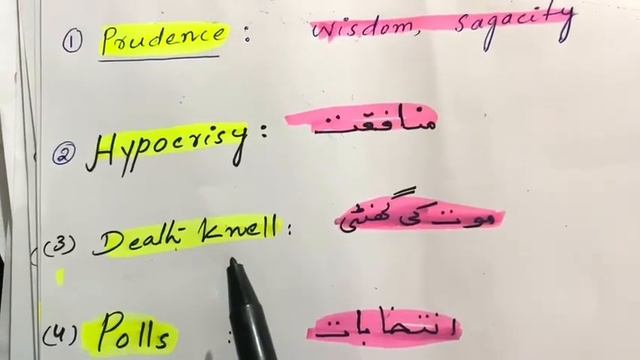 ① Prudence : Wisdom, Sagacity
② Hypocrisy : منافقت
(3) Death Knell : موت کی گھنٹی
(4) Polls : انتخابات